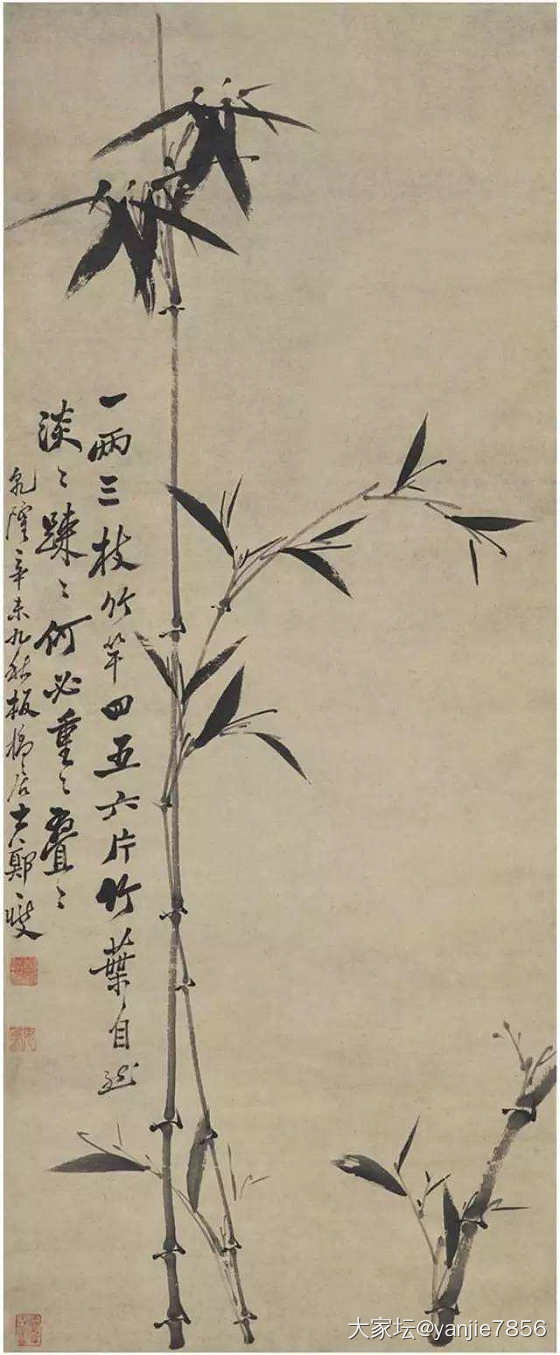 一两三枝竹竿四五六片竹葉自然
淡〻疎〻何必重〻叠〻
乾隆辛未九秋板橋居士鄭燮
大家坛@yanjie7856